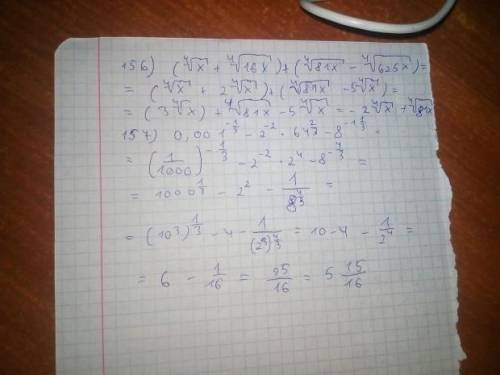 156) (∜x + ∜16x) + (∜81x − ∜625x) =
= (∜x + 2∜x) + (∜81x − 5∜x) =
= (3∜x) + ∜81x − 5∜x = −2∜x + ∜81x
157) 0,001^(−1/3) − 2^(−2) · 64^(2/3) − 8^(−1 1/3) =
= (1/1000)^(−1/3) − 2^(−2) · 2^4 − 8^(−4/3) =
= 1000^(1/3) − 2^2 − 1/8^(4/3) =
= (10^3)^(1/3) − 4 − 1/(2^3)^(4/3) = 10 − 4 − 1/2^4 =
= 6 − 1/16 = 95/16 = 5 15/16